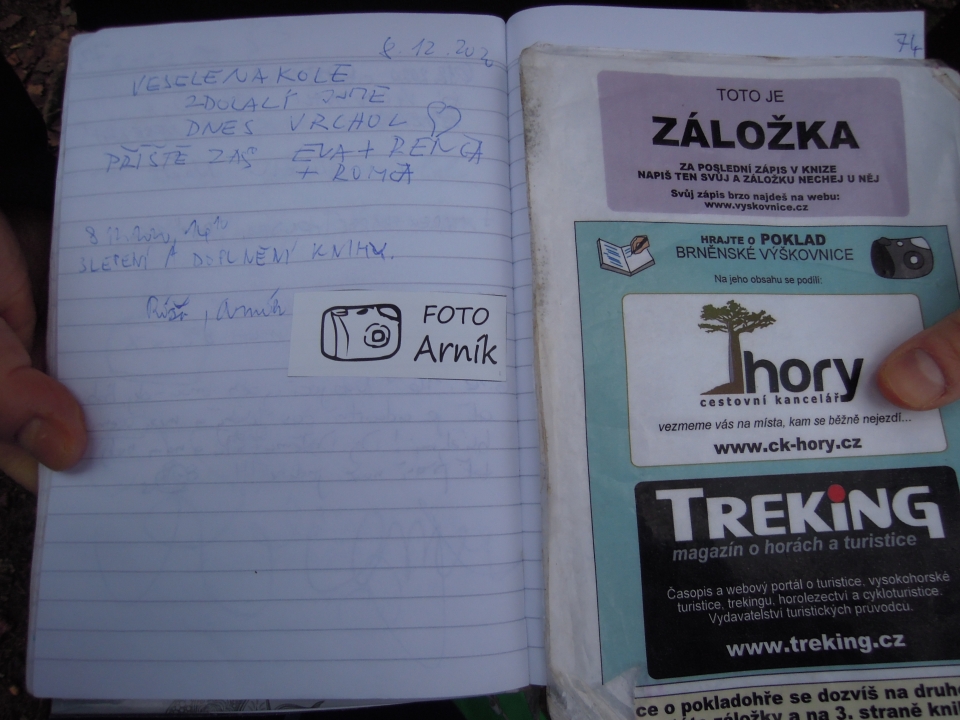 8.12.2020
VESELE NA KOLE
ZDOLALY JSME
DNES VRCHOL
PŘÍŠTĚ ZAS EVA + RENČA
+ ROMČA
SLEPENÍ A DOPLNĚNÍ KNIHY.
, Arník
FOTO
Arník
74
TOTO JE
ZÁLOŽKA
ZA POSLEDNÍ ZÁPIS V KNIZE
NAPIŠ TEN SVŮJ A ZÁLOŽKU NECHEJ U NĚJ
Svůj zápis brzo najdeš na webu:
www.vyskovnice.cz
HRAJTE O POKLAD
BRNĚNSKÉ VÝŠKOVNICE
Na jeho obsahu se podílí:
hory
cestovní kancelář
vezmeme vás na místa, kam se běžně nejezdí...
www.ck-hory.cz
TREKiNG
magazín o horách a turistice
Časopis a webový portál o turistice, vysokohorské
turistice, trekingu, horolezectví a cykloturistice.
Vydavatelství turistických průvodců.
www.treking.cz
ce o pokladohře se dozvíš na druhé
záložky a na 3. straně kni